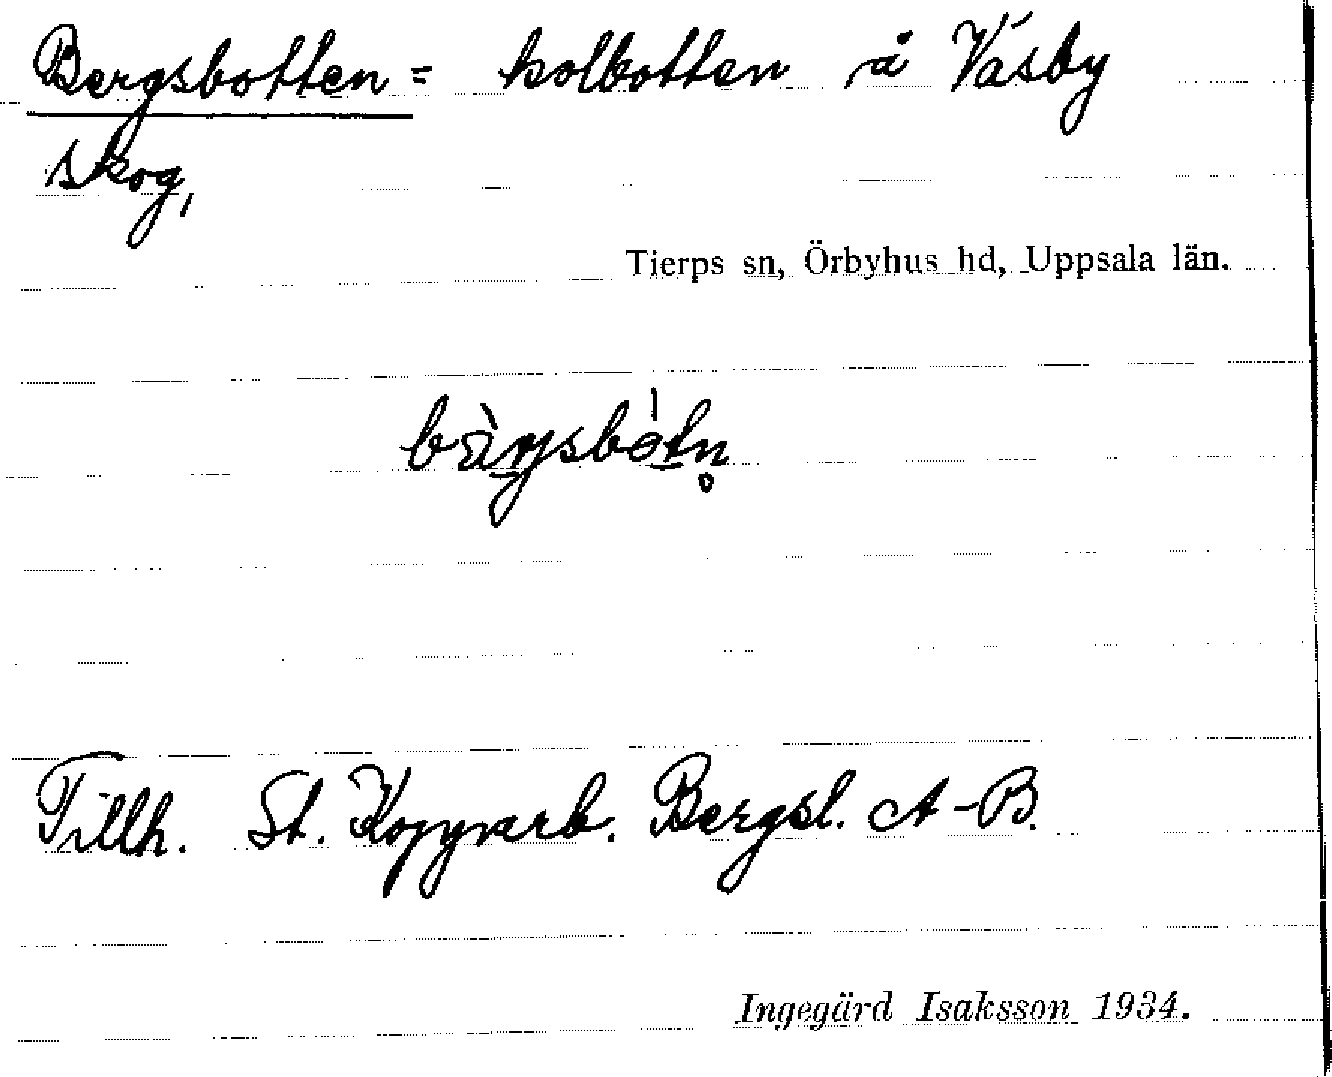 Bergsbotten = kolbotten å Väsby
skog,
Tierps sn, Örbyhus hd, Uppsala län.
Tillh. St. Kopparb. Bergsl. A-B.
Ingegärd Isaksson 1934.